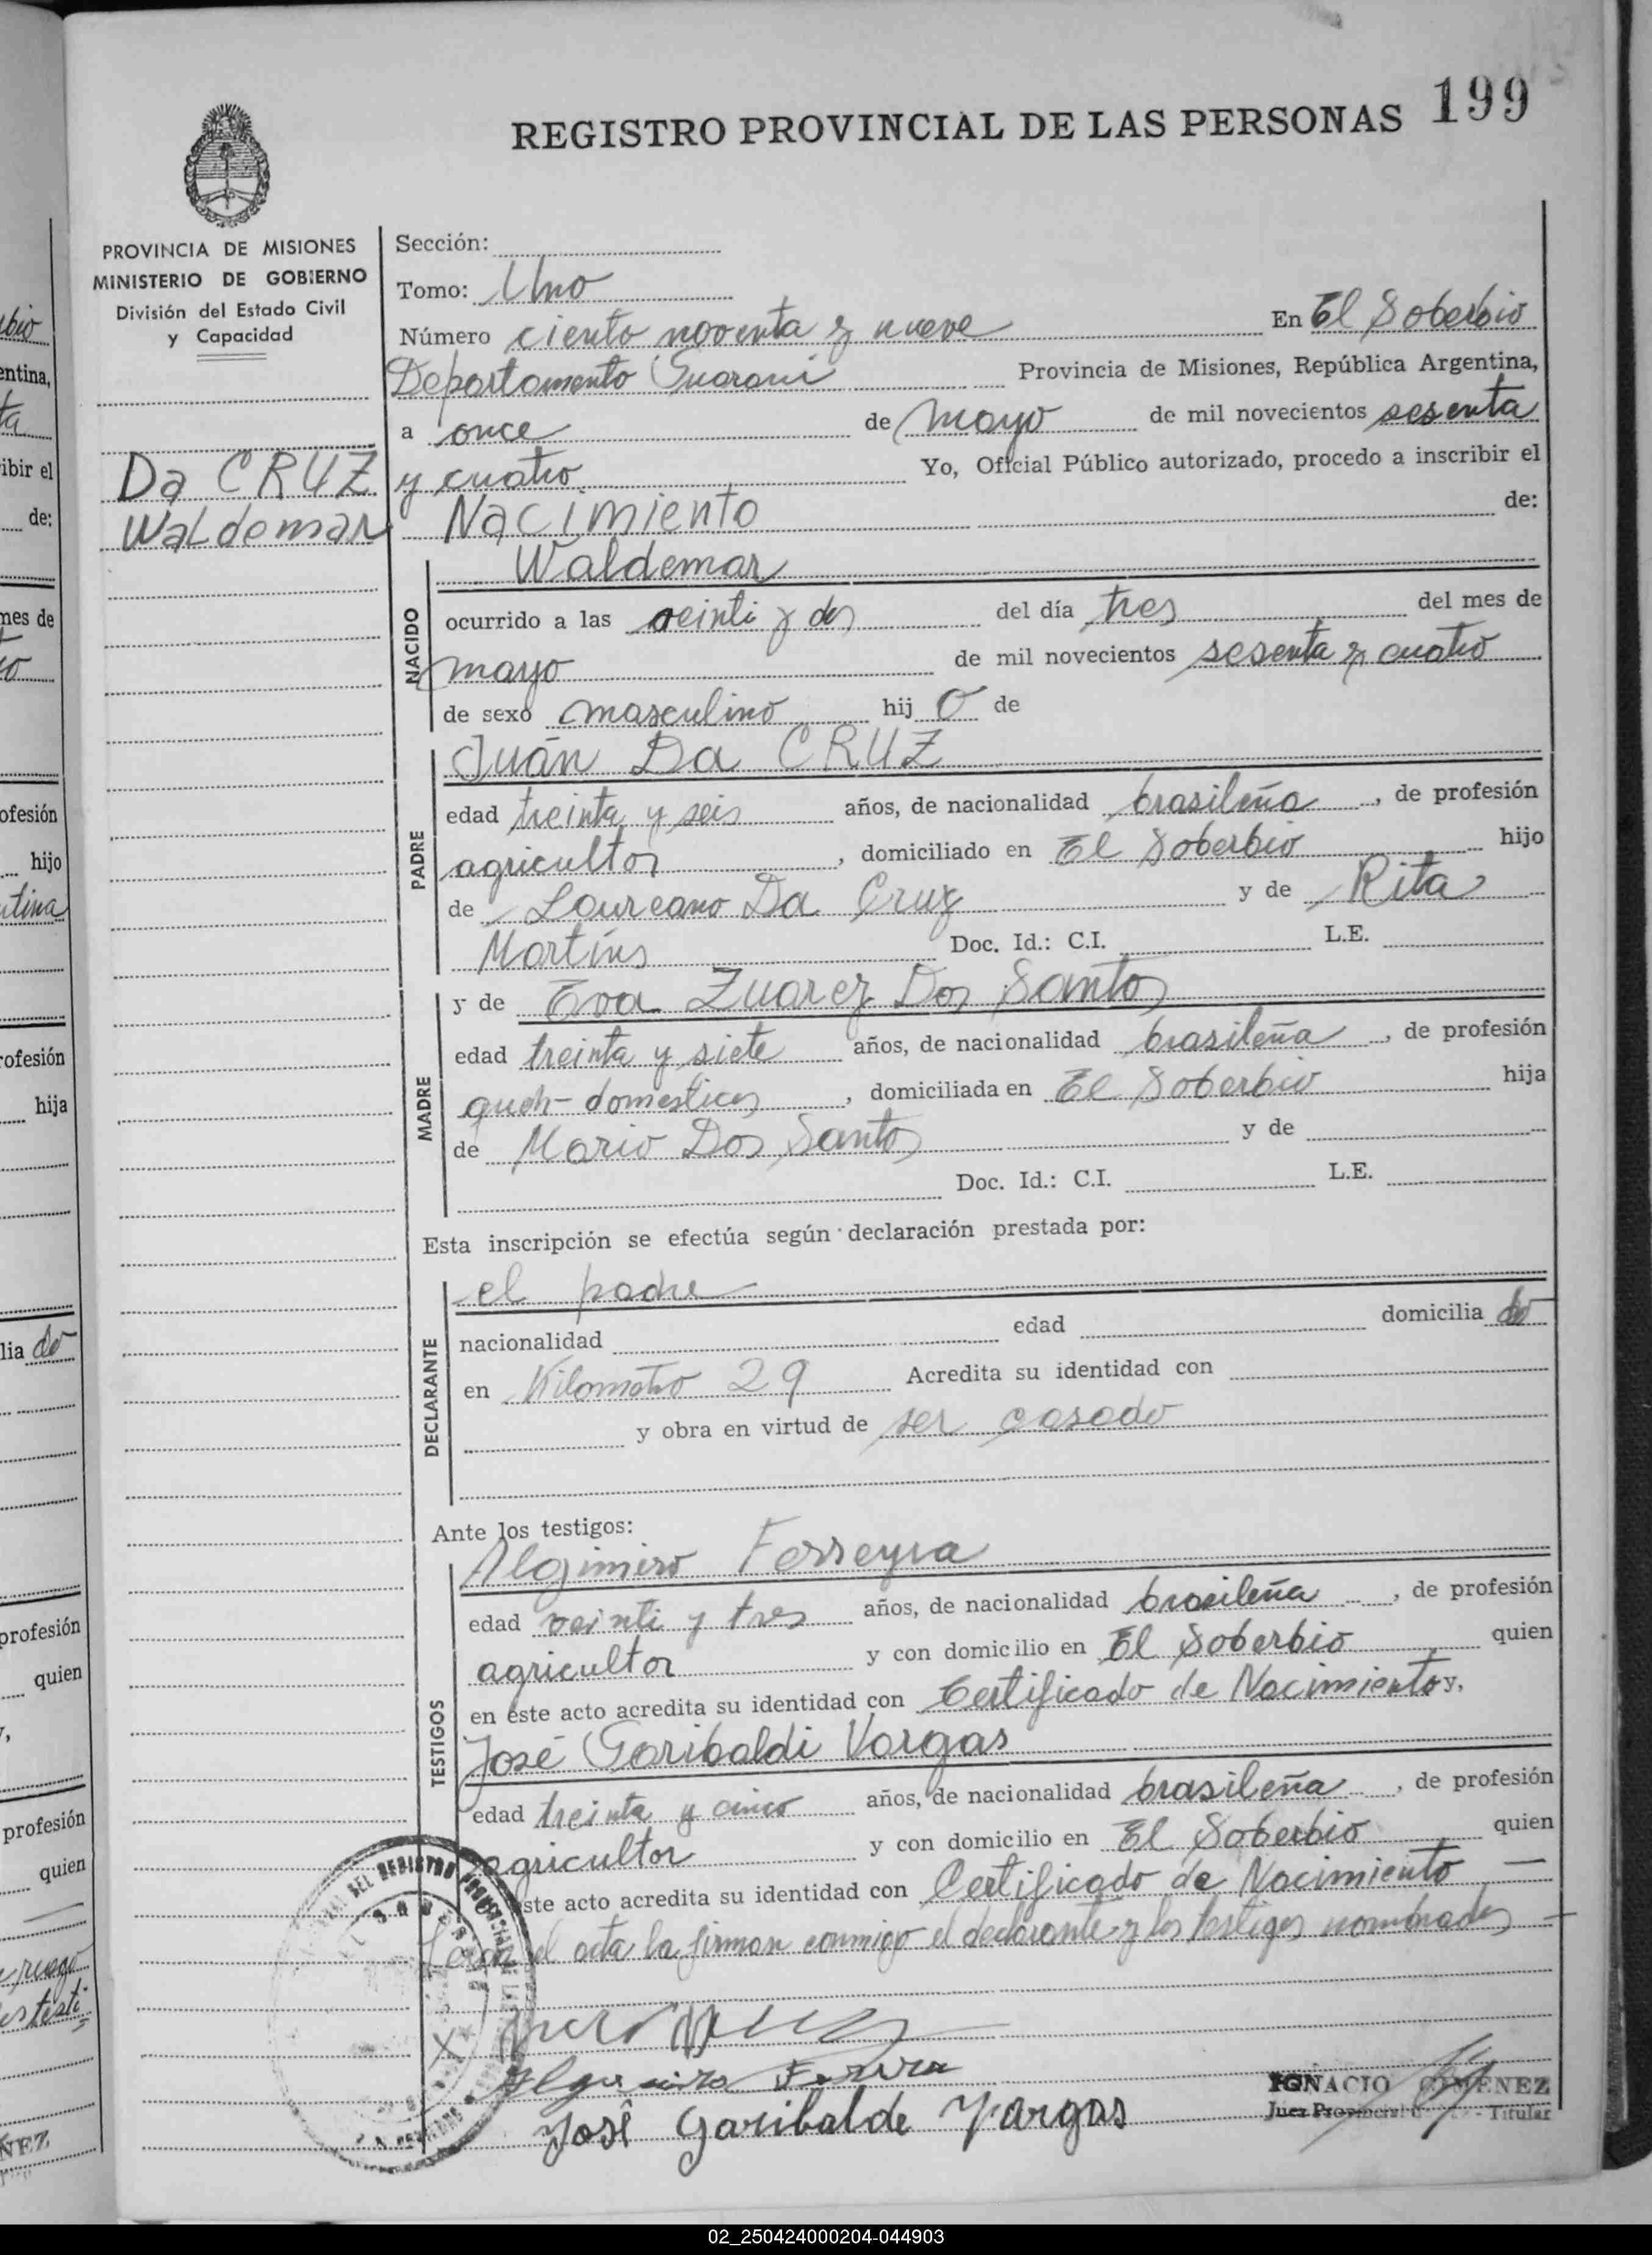 REGISTRO PROVINCIAL DE LAS PERSONAS 199
PROVINCIA DE MISIONES
MINISTERIO DE GOBIERNO
División del Estado Civil
y Capacidad
Da CRUZ
Waldemar
Sección:
Tomo: Uno
Número ciento noventa y nueve En El Soberbio
Departamento Guaraní Provincia de Misiones, República Argentina,
a once de mayo de mil novecientos sesenta
y cuatro Yo, Oficial Público autorizado, procedo a inscribir el
Nacimiento de:
Waldemar
NACIDO
ocurrido a las veinti y dos del día tres del mes de
mayo de mil novecientos sesenta y cuatro
de sexo masculino hij o de
PADRE
Juán Da CRUZ
edad treinta y seis años, de nacionalidad brasileña, de profesión
agricultor, domiciliado en El Soberbio hijo
de Laureano Da Cruz y de Rita
Martins Doc. Id.: C.I. L.E.
MADRE
y de Eva Zuarez Dos Santos
edad treinta y siete años, de nacionalidad brasileña, de profesión
domesticos, domiciliada en El Soberbio hija
de Mario Dos Santos y de
Doc. Id.: C.I. L.E.
Esta inscripción se efectúa según declaración prestada por:
DECLARANTE
el padre
nacionalidad edad domicilia do
en Kilometro 29 Acredita su identidad con
y obra en virtud de ser casado
Ante los testigos:
TESTIGOS
Algimiro Ferreyra
edad veinti y tres años, de nacionalidad brasileña, de profesión
agricultor y con domicilio en El Soberbio quien
en este acto acredita su identidad con Certificado de Nacimiento y,
José Garibaldi Vargas
edad treinta y cinco años, de nacionalidad brasileña, de profesión
agricultor y con domicilio en El Soberbio quien
este acto acredita su identidad con Certificado de Nacimiento —
el acta la firman conmigo el declarante y los testigos nombrados —
José Garibalde Vargas
IGNACIO GIMENEZ
Juez Titular
02_250424000204-044903